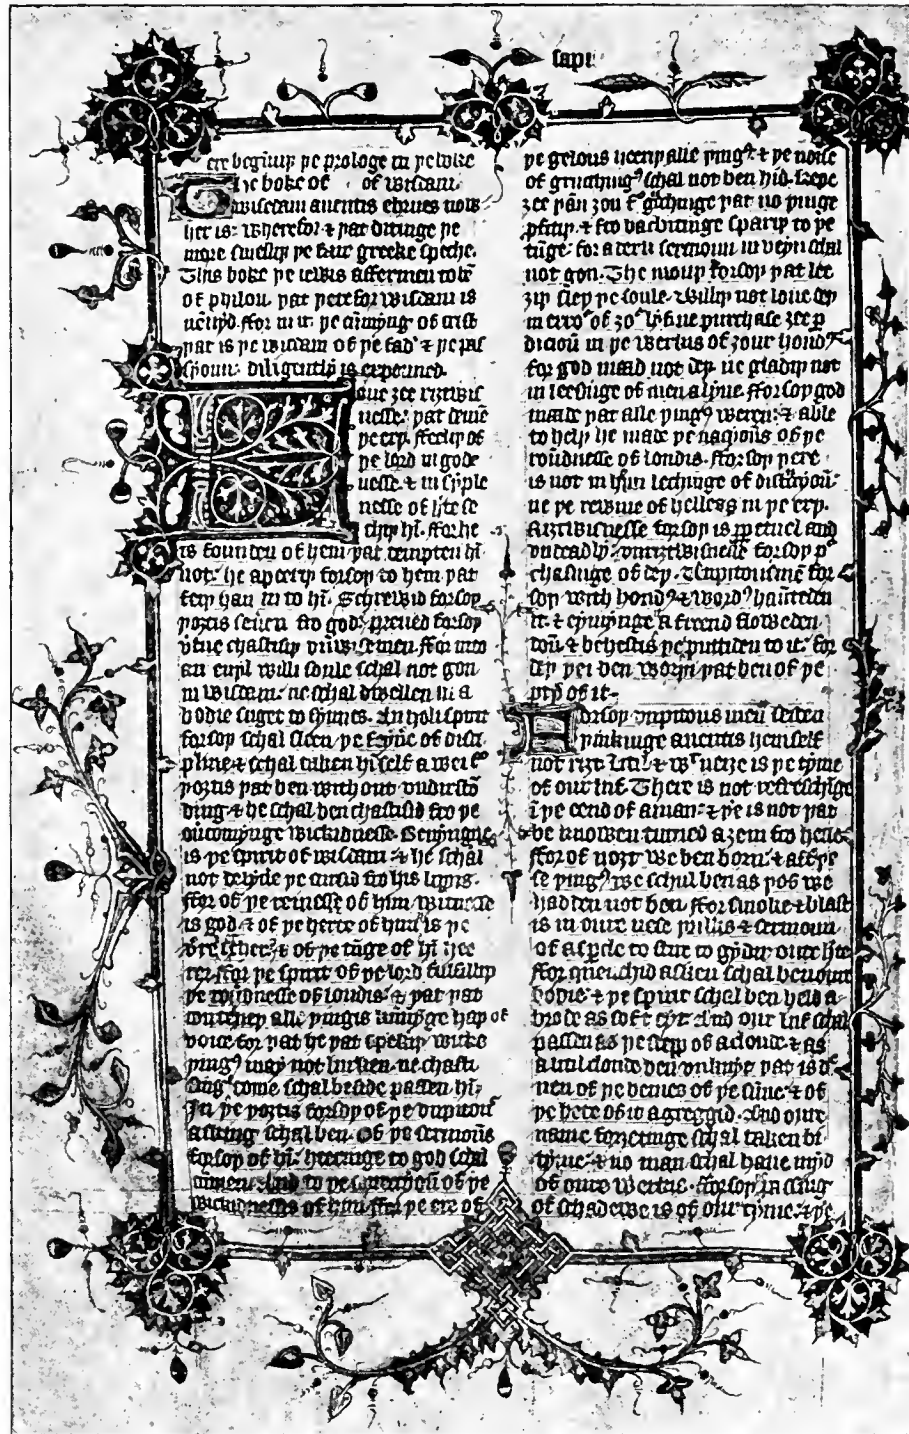 sapi
ere begīniþ þe prologe in þe boke
þe boke of of wisdam
wisedam anentis ebrues now
her is: wherefor & þat ditinge þe
more smelliþ þe faur greeke speche.
This boke þe iewis affermen to bē
of philon. þat þerefor wisdam is
nēnyd. ffor in it. þe cūmyng of crist
þat is þe wisdam of þe fad' & þe pas
syoun: diligently is expouned.
oue zee riztwis
nesse: þat demē
þe erþ. ffeeliþ of
þe lord in gode
nesse. & in sȳple
nesse of herte se
cheþ hī. ffor he
is founden of hem þat tempten hī
not: he apeeriþ forsoþ to hem þat
feiþ han in to hī. Schrewid forsoþ
þoztis seuen fro god: preued forsoþ
v̄tue chastisiþ vn̄wise men. ffor into
an euyl willi soule schal not gon
in wisdam: ne schal dwellen in a
bodie suget to synnes. An holi spirit
forsoþ schal fleen þe feyne of disci
pline. & schal taken hīself awei fro
þoztis þat ben with out vndirstō
ding. & he schal ben chastisid fro þe
oūcomynge wickidnesse. Benyngne
is þe spirit of wisdam: & he schal
not delyūe þe cursid fro his lippis.
ffor of þe reinesse of him witnesse
is god. & of þe herte of him is þe
of þe tūge of hī
ffor þe spirit of þe lord fulfilliþ
þe roūdnesse of londis: & þat þat
conteneþ alle þingis kūnynge haþ of
voice. for þat he þat spekiþ wicke
þing' may not lurken. ne chasti
sing' come schal beside passen hī.
In þe þoztis forsoþ of þe vnpitous
asking schal ben. Of þe sermoūs
forsoþ of hī: heeringe to god schal
cūmen. And to þe correccioū of þe
wickidnessis of him. ffor þe ere of
þe gelous heeriþ alle þing'. & þe noise
of grucching' schal not ben hid. Kepe
zee þan zou fro gruchinge þat no þinge
ꝓfitiþ. & fro bacbitinge spariþ to þe
tūge. for a derk sermoun in veyn schal
not gon. The mouþ forsoþ þat lee
ziþ sleþ þe soule. Williþ not loue deþ
in erro' of zo' lyf. ne purchase zee ꝑ
dicioū in þe werkus of zoure hond'
for god maad not deþ. ne gladiþ not
in leesinge of men alyue. ffor soþ god
made þat alle þing' weren: & able
to helþ he made þe nacyoūs of þe
roūdnesse of londis. ffor soþ þere
is not in hym lechinge of distructyoū:
ne þe rewme of helleg in þe erþ.
Riztwisnesse forsoþ is ꝑpetuel and
vndeadly: vnriztwisnesse forsoþ p'
chasinge of deþ. Vnpitousmē for
soþ with hond' & word' haūteden
it. & eymynge a freend floweden
doū. & behestis þei puttiden to it. for
deþ þei ben worþi þat ben of þe
part of it.
orsoþ vnpitous men seiden
þinkinge anentis hemself
not rizt. Litil & wt neize is þe tyme
of our lif. There is not refreschīge
ī þe eend of a man: & þer is not þat
be knowen turned azeen fro helle.
ffor of nozt we ben born: & aft þe
se þing' we schul ben as þos we
hadden not ben. ffor smoke & blast
is in oure nese þirlis & sermoun
of a sparcle to stire to gyder oure herte
ffor queinchid asken schal ben oure
bodie. & þe spirit schal ben held a
brode as soft eyr. And our lif schal
passen as þe step of a cloude. & as
a litil cloude ben vnknyt. þat is d'
uen of þe bemes of þe sūne. & of
þe hete of it agreggid. And oure
name forzetinge schal taken bi
tyme: & no man schal haue mȳd
of oure werkis. fforsoþ passing
of schadewe is of our tyme: & þe